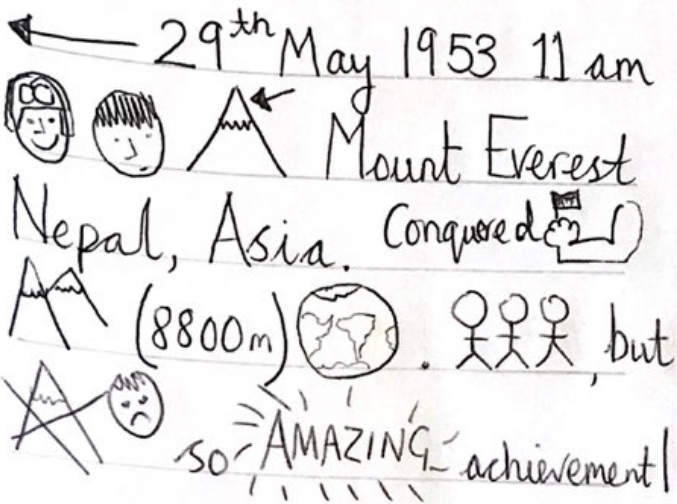 29th May 1953 11 am
Mount Everest
Nepal, Asia. Conquered
(8800m) . , but
so AMAZING achievement!